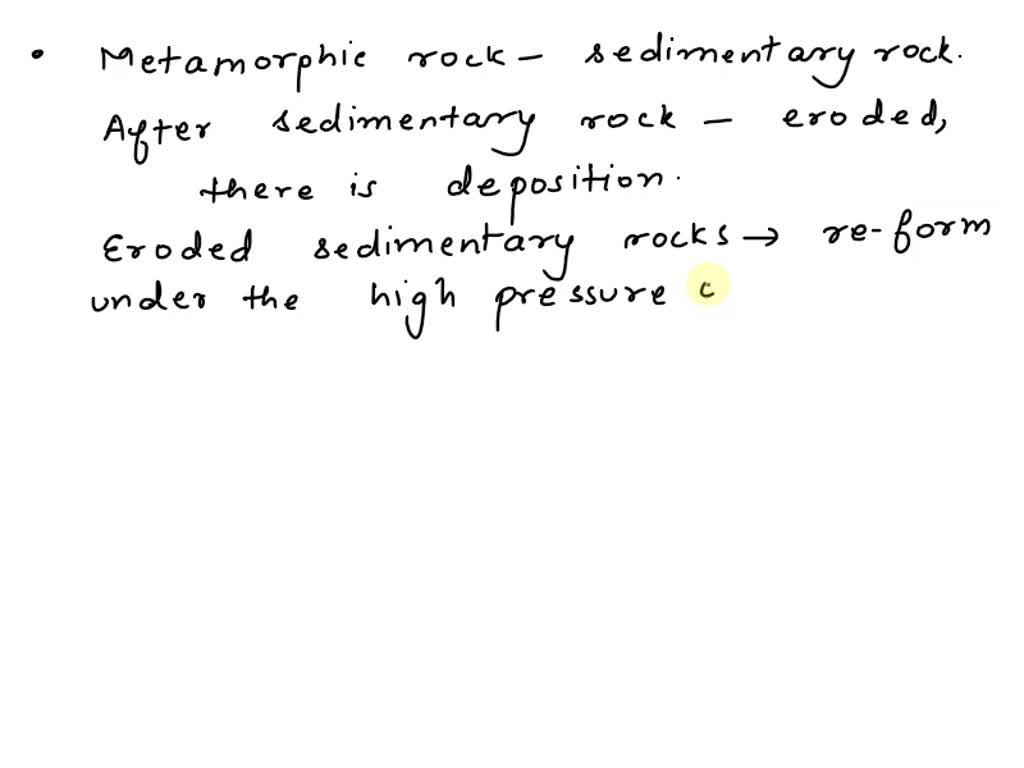 • Metamorphic rock - sedimentary rock.
After sedimentary rock - eroded,
there is deposition.
Eroded sedimentary rocks → re-form
under the high pressure c